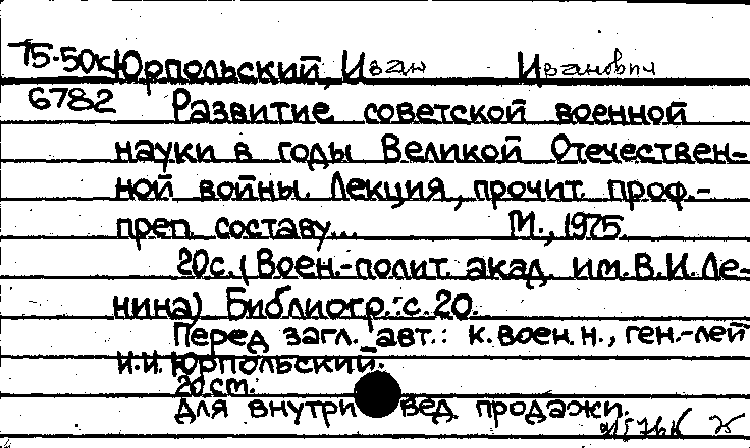 75-50к Юрпольский, Иван Иванович
6782 Развитие советской военной
науки в годы Великой Отечествен-
ной войны. Лекция, прочит. проф.-
преп. составу... М., 1975.
20с. (Воен.-полит. акад. им. В.И. Ле-
нина) Библиогр.: с. 20.
Перед загл. авт.: к. воен. н., ген.-лей
И.И. Юрпольский.
20 см.
Для внутривед. продажи.